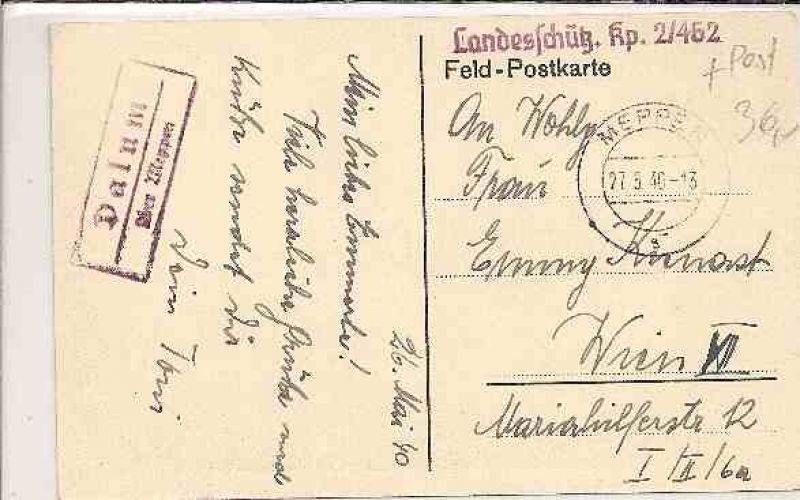 Landesschütz. Kp. 2/462
Feld-Postkarte
+ Post
36,-
An Wohlg.
Frau
Emmy Kunast
Wien VI
Mariahilferstr 12
I/II/6a
MEPPEN
27.5.40-13
a
Dalum
über Meppen
26. Mai 40
Mein liebes Emmerle!
Viele herzliche Grüße und
Küsse sendet Dir
Dein Toni